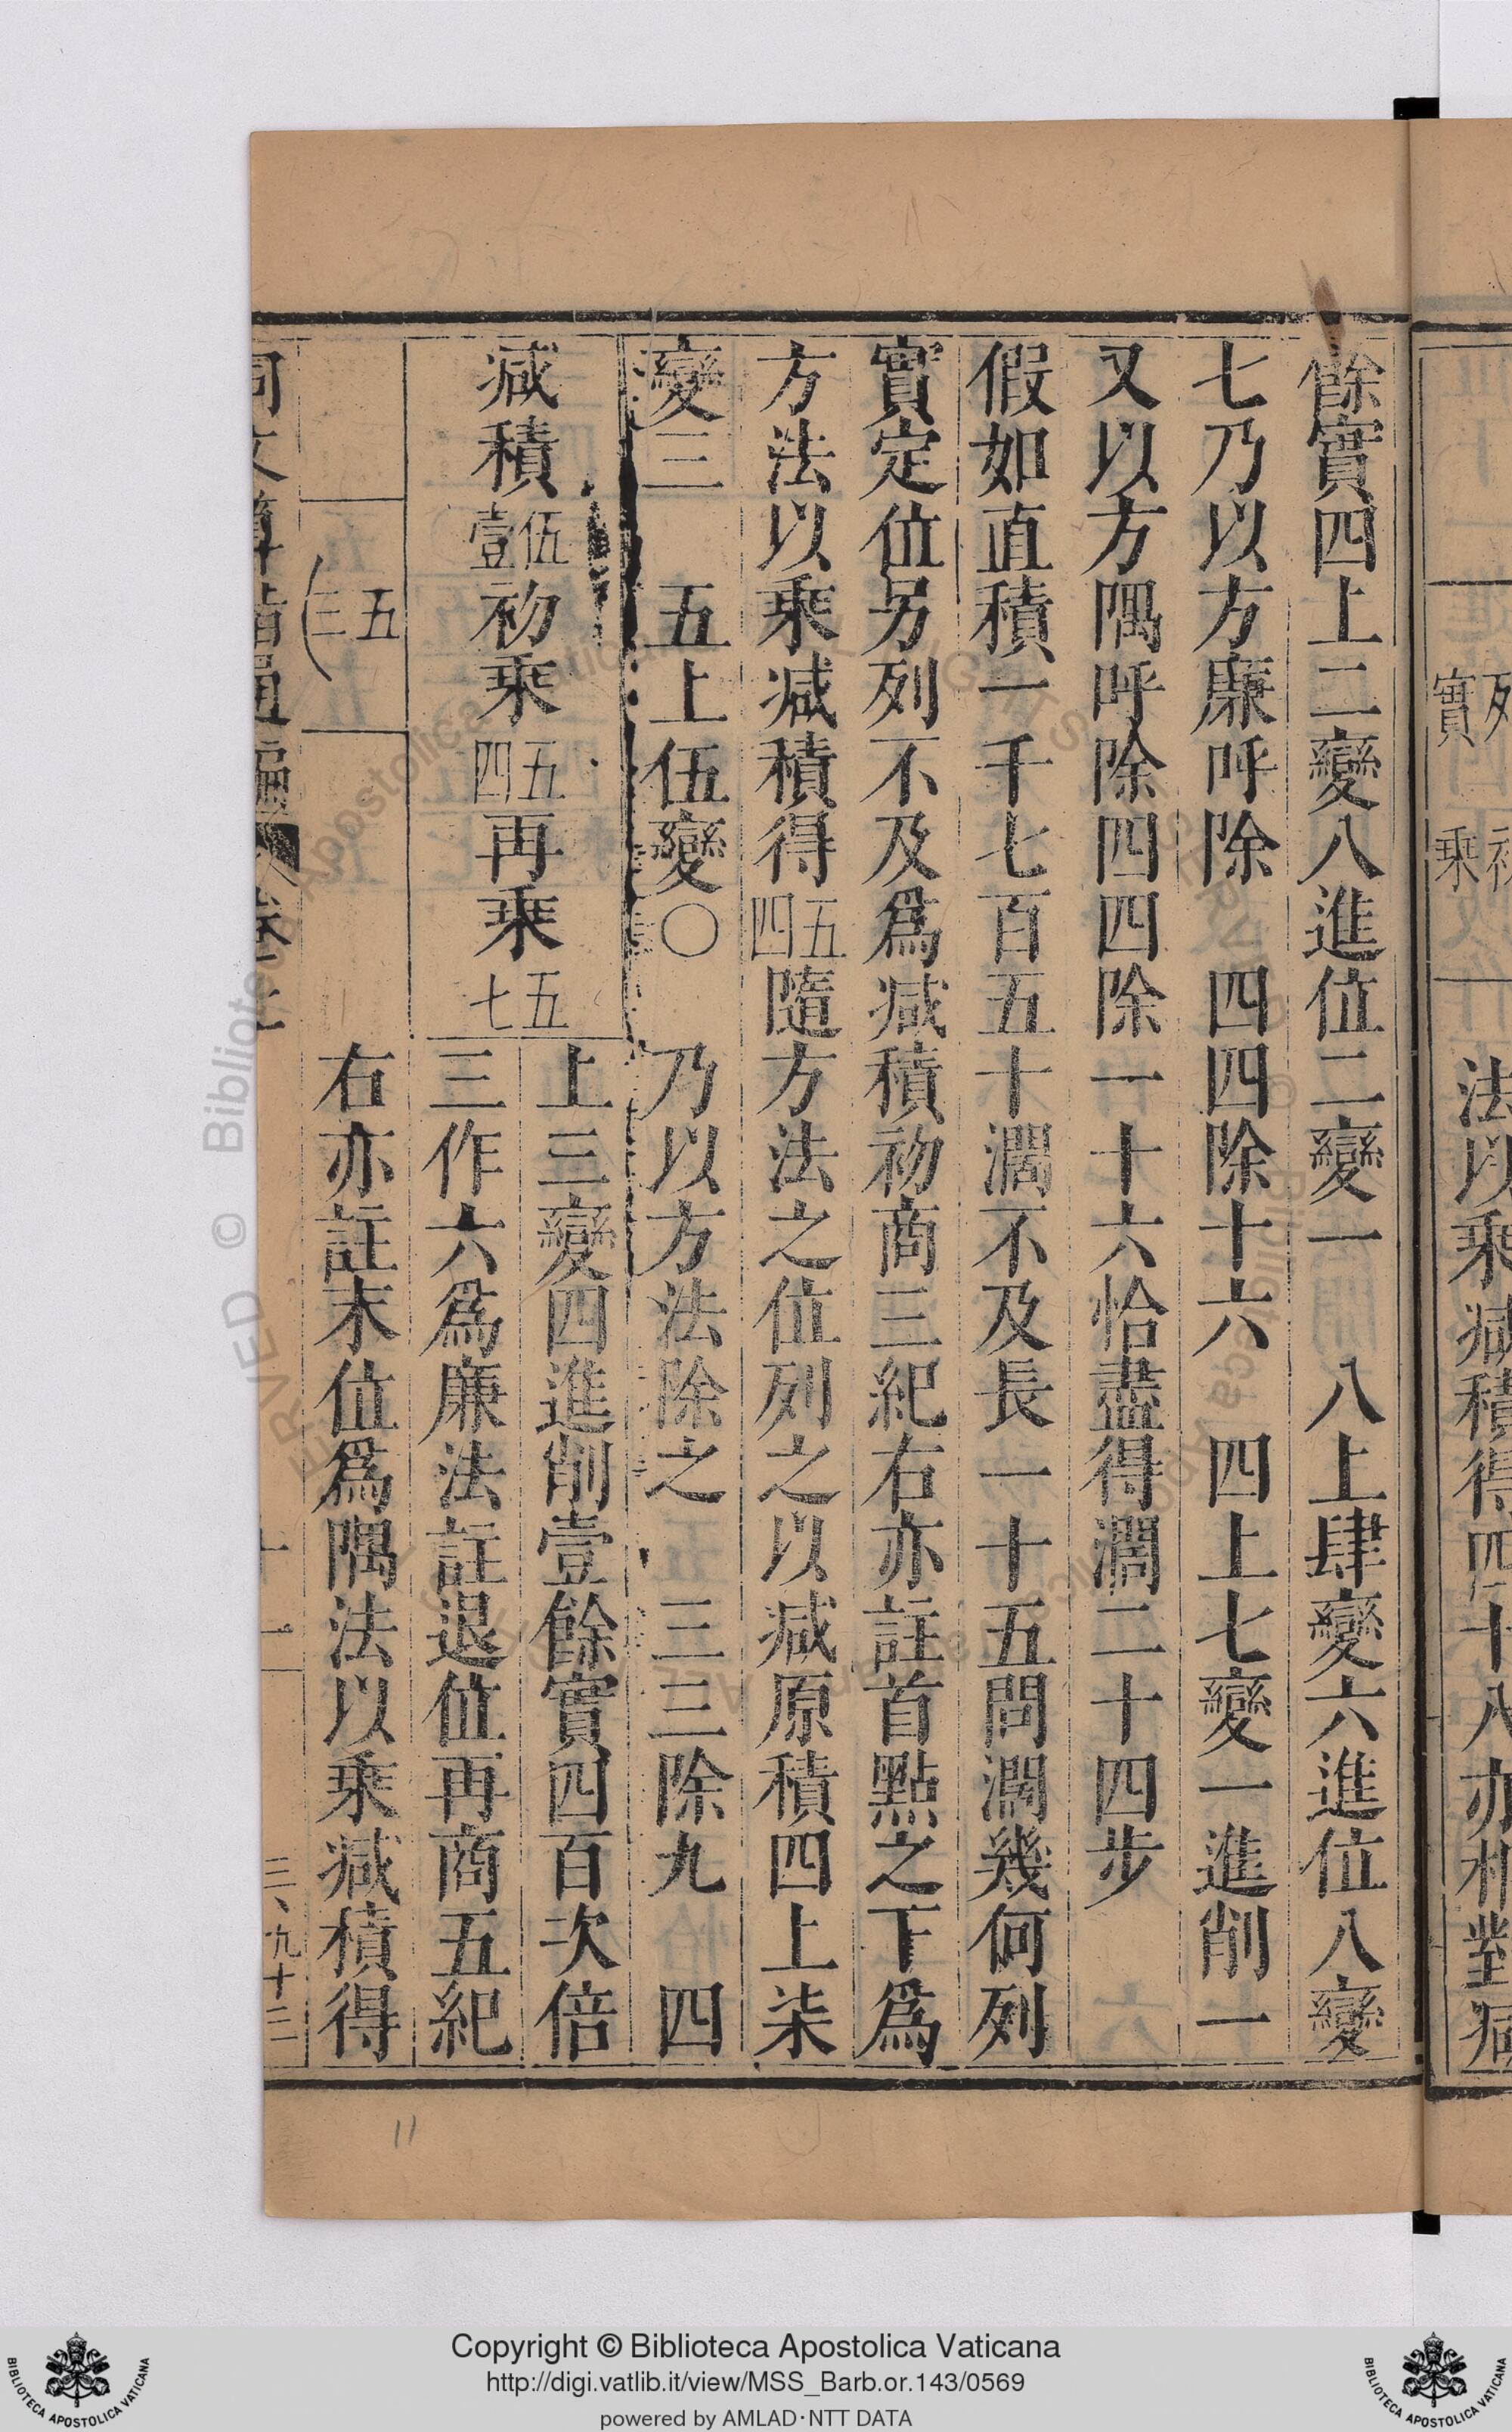 法以乘減積得四十八亦相對減
餘實四上二變八進位二變一 八上肆變六進位八變
七乃以方廉呼除 四四除十六 四上七變一進削一
又以方隅呼除四四除一十六恰盡得濶二十四步
假如直積一千七百五十濶不及長一十五問濶幾何列
實定位另列不及爲減積初商三紀右亦註首點之下爲
方法以乘減積得四五隨方法之位列之以減原積四上柒
變三 五上伍變〇 乃以方法除之 三三除九 四
減積壹伍初乘四五再乘七五
上三變四進削壹餘實四百次倍
三作六爲廉法註退位再商五紀
五
三
右亦註末位爲隅法以乘減積得
同文算指通編
十一
三、九十二
11
Copyright © Biblioteca Apostolica Vaticana
http://digi.vatlib.it/view/MSS_Barb.or.143/0569
powered by AMLAD·NTT DATA
BIBLIOTECA APOSTOLICA VATICANA
BIBLIOTECA APOSTOLICA VATICANA